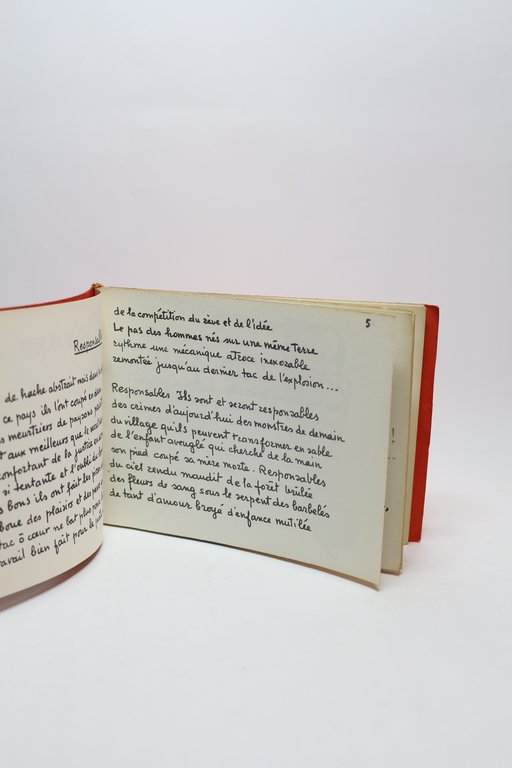 Responsa
de hache abstrait mais
ce pays ils l'ont coupé en deux
meurtriers de paysans
aux meilleurs que le
confortant de la justice
si tentante et l'oubli
bons ils ont fait les
boue des plaisirs et
tac ô cœur ne bat plus
travail bien fait pour le
5
de la compétition du rêve et de l'idée
Le pas des hommes nés sur une même Terre
rythme une mécanique atroce inexorable
remontée jusqu'au dernier tac de l'explosion...
Responsables Ils sont et seront responsables
des crimes d'aujourd'hui des monstres de demain
du village qu'ils peuvent transformer en sable
de l'enfant aveuglé qui cherche de la main
son pied coupé sa mère morte. Responsables
du ciel rendu maudit de la forêt brûlée
des fleurs de sang sous le serpent des barbelés
de tant d'amour broyé d'enfance mutilée